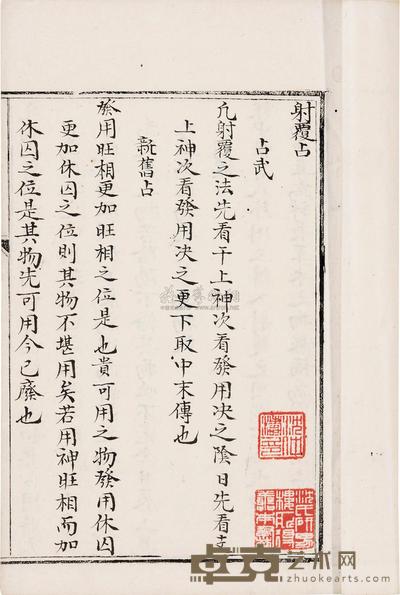 射覆占
占式
凡射覆之法先看干上神次看發用决之陰日先看支
上神次看發用决之更下取中末傳也
新舊占
發用旺相更加旺相之位是也貴可用之物發用休囚
更加休囚之位則其物不堪用矣若用神旺相而加
休囚之位是其物先可用今已廢也
卓克艺术网
www.zhuokearts.com